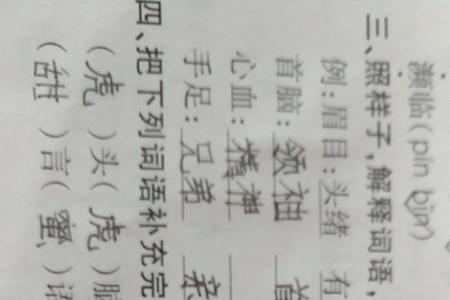 濒临(pín bīn)
三、照样子,解释词语,
例:眉目:头绪 有
首脑:领袖 首
心血:精神
手足:兄弟 亲
四、把下列词语补充完
(虎)头(虎)脑
(甜)言(蜜)语